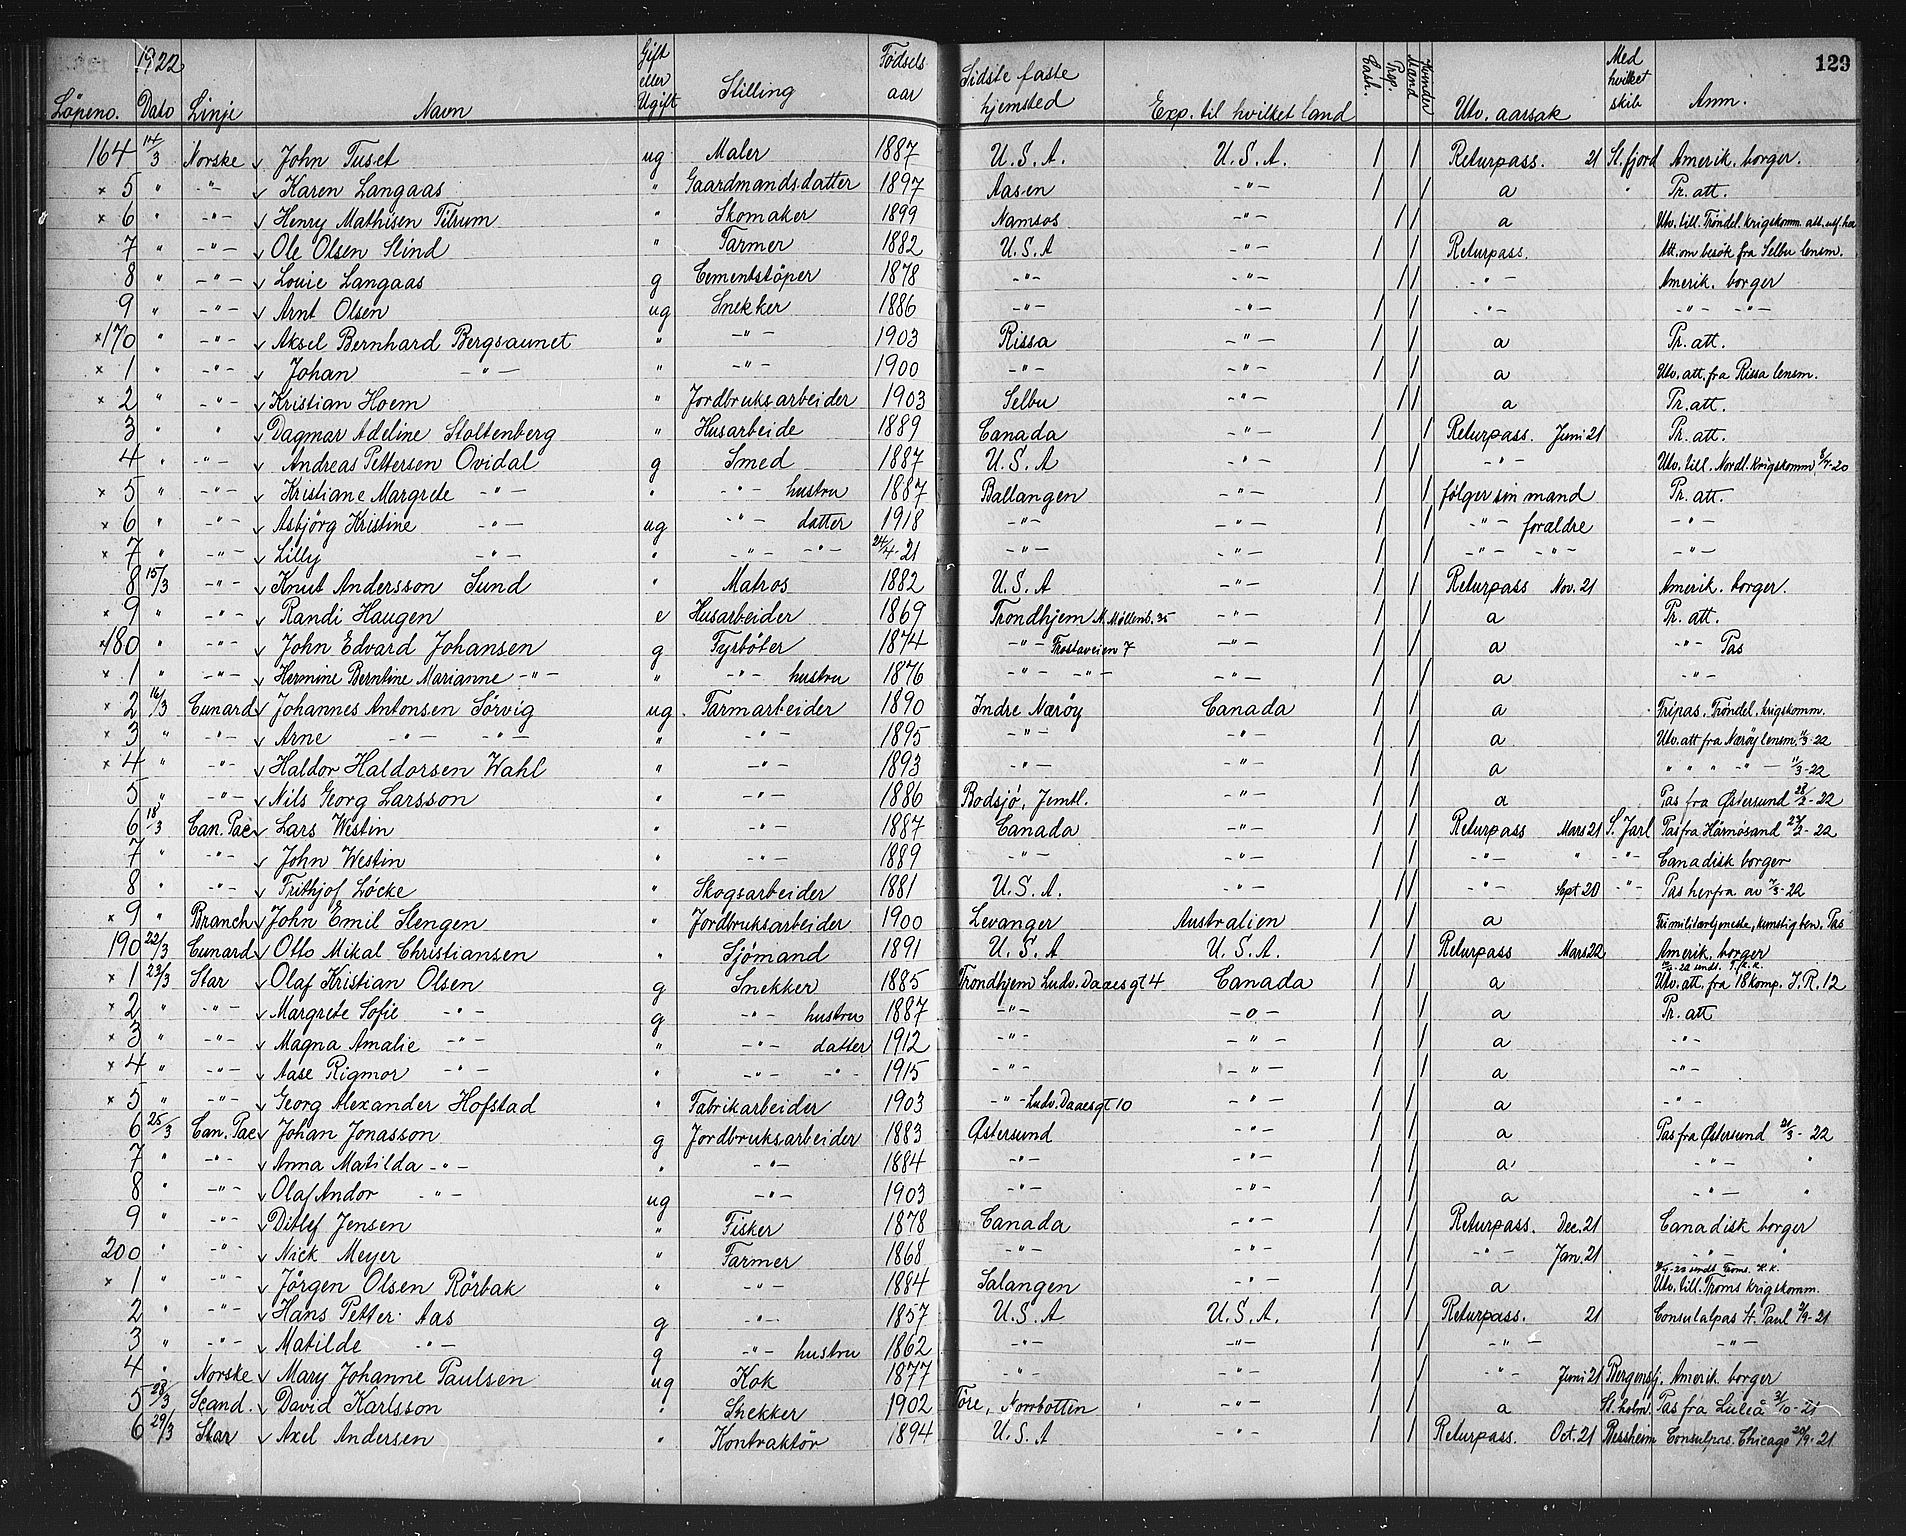 129
1922
Löpeno. Dato Linje Navn Gift eller Ugift Stilling Fødsels aar Sidste faste hjemsted Exp. til hvilket land Utv. aarsak Med hvilket skib Anm.
164 14/3 Norske John Tuset ug Maler 1887 U.S.A. U.S.A. / / Returpass. 21 St.fjord Amerik. borger.
× 5 " -"- Karen Langaas " Gaardmandsdatter 1897 Aasen -"- / / a " Pr. att.
× 6 " -"- Henry Mathisen Tilrum " Skomaker 1899 Namsos -"- / / a Utv. till. Tröndel. krigskomm. att. utf. hæ
7 " -"- Ole Olsen Slind " Farmer 1882 U.S.A -"- / / Returpass. Att. om besök fra Selbu lensm.
8 " -"- Louie Langaas g Cementstöper 1878 -"- -"- / / -"- Amerik. borger
9 " -"- Arnt Olsen ug Snekker 1886 -"- -"- / / -"- -"- -"-
×170 " -"- Aksel Bernhard Bergsaunet " -"- 1903 Rissa -"- / / a Pr. att.
× 1 " -"- Johan -"- " -"- 1900 -"- -"- / / a Utv. att. fra Rissa lensm.
× 2 " -"- Kristian Hoem " Jordbruksarbeider 1903 Selbu -"- / / a Pr. att.
3 " " Dagmar Adeline Stoltenberg " Husarbeide 1889 Canada -"- / / Returpass. Juni 21 Pr. att.
4 " -"- Andreas Pettersen Ovidal g Smed 1887 U.S.A -"- / / -"- Utv. till. Nordl. krigskomm. 8/7-20
× 5 " -"- Kristiane Margrete -"- " -"- hustru 1887 Ballangen -"- / / følger sin mand Pr. att.
× 6 " -"- Asbjörg Kristine -"- ug -"- datter 1918 -"- -"- / / -"- foraldre -"-
× 7 " -"- Lilly -"- " -"- -"- 24/4-21 -"- -"- / / -"- -"- -"-
8 15/3 -"- Knut Andersson Sund " Matros 1882 U.S.A -"- / / Returpass Nov. 21 Amerik. borger.
× 9 " -"- Randi Haugen e Husarbeider 1869 Trondhjem N. Møllenb. 35 -"- / / a Pr. att.
×180 " -"- John Edvard Johansen g Fyrböter 1874 -"- Frostaveien 7 -"- / / a -"- Pas
× 1 " -"- Hermine Berntine Marianne -"- " -"- hustru 1876 -"- -"- -"- / / a -"-
× 2 16/3 Cunard Johannes Antonsen Sørvig ug. Farmarbeider 1890 Indre Nærøy Canada / / a Fripas. Tröndel. krigskomm.
× 3 " -"- Arne -"- -"- " -"- 1895 -"- -"- / / a Utv. att fra Nærøy lensm. 11/3-22
× 4 " -"- Haldor Haldorsen Wahl " -"- 1893 -"- -"- / / a " " " -"- 11/3-22
5 " -"- Nils Georg Larsson " -"- 1886 Bodsjö, Jemtl. -"- / / a Pas fra Østersund 28/2-22
6 18/3 Can. Pac. Lars Westin " -"- 1887 Canada -"- / / Returpass Mars 21 S. Jarl Pas fra Härnösand 27/2-22
7 " -"- John Westin " -"- 1889 -"- -"- / / -"- " -"- Canadisk borger
8 " -"- Frithjof Löcke " Skogsarbeider 1881 U.S.A. -"- / / -"- Sept 20 -"- Pas herfra av 7/3-22
× 9 " Branch John Emil Stengen " Jordbruksarbeider 1900 Levanger Australien / / a Fri militærtjeneste, kunstig ben. Pas
190 22/3 Cunard Otto Mikal Christiansen " Sjömand 1891 U.S.A U.S.A. / / Returpass Mars 22 Amerik. borger
× 1 23/3 Star Olaf Kristian Olsen g Snekker 1885 Trondhjem Ludv. Daaesgt 4 Canada / / a Utv. att. fra 18 komp. J.R. 12
× 2 " -"- Margrete Sofie -"- g -"- hustru 1887 -"- -"- / / a Pr. att
× 3 " -"- Magna Amalie -"- " -"- datter 1912 -"- -"- / / a -"-
× 4 " -"- Aase Rigmor -"- " -"- -"- 1915 -"- -"- / / a -"-
× 5 " -"- Georg Alexander Hofstad " Fabrikarbeider 1903 -"- Ludv. Daaesgt 10 -"- / / a -"-
6 25/3 Can. Pac Johan Jonasson g Jordbruksarbeider 1883 Østersund -"- / / a Pas fra Østersund 21/3-22
7 " -"- Anna Matilda -"- " -"- 1884 -"- -"- / / a -"- "
8 " -"- Olaf Andor -"- ug -"- 1903 -"- -"- / / a -"- "
9 " -"- Ditlef Jensen " Fisker 1878 Canada -"- / / Returpass. Dec. 21 Canadisk borger
200 " -"- Nick Meyer " Farmer 1868 -"- -"- / / -"- Jan. 21 -"- "
× 1 " -"- Jörgen Olsen Rörbak " -"- 1884 Salangen -"- / / a Utv. till. Troms krigskomm.
2 " -"- Hans Petter Aas g -"- 1857 U.S.A U.S.A. / / Returpass. 21 Consulalpas St. Paul 2/9-21
3 " -"- Matilde -"- g -"- hustru 1862 -"- -"- / / -"- -"-
4 " Norske Mary Johanne Paulsen ug Kok 1877 -"- -"- / / -"- Juni 21 Bergensfj. Amerik. borger
5 28/3 Scand. David Karlsson " Snekker 1902 Töre, Norrbotten -"- / / a St. holm Pas fra Luleå 31/10-21
6 29/3 Star Axel Andersen " Kontraktör 1894 U.S.A -"- / / Returpass. Oct. 21 Bessheim Consulpas. Chicago 20/9-21